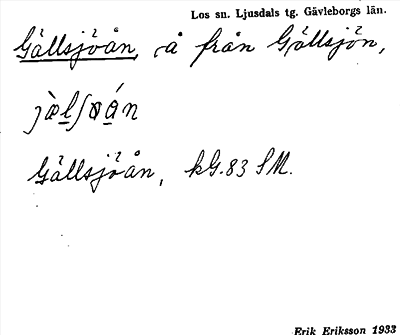 Los sn. Ljusdals tg. Gävleborgs län.
Gällsjöån, å från Gällsjön,
Gällsjöån, kG. 83 SM.
Erik Eriksson 1933